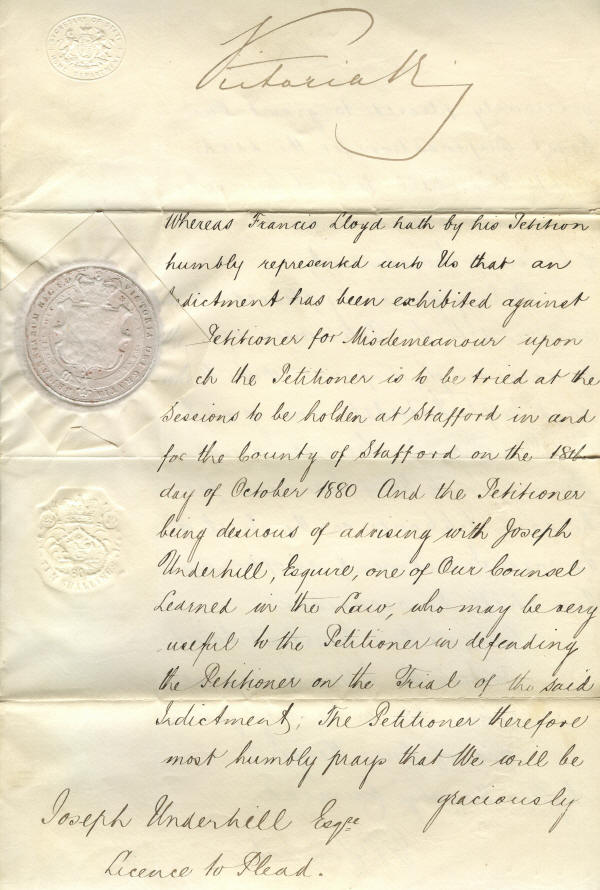 Victoria R
Whereas Francis Lloyd hath by his Petition
humbly represented unto Us that an
Indictment has been exhibited against
Petitioner for Misdemeanour upon
ch the Petitioner is to be tried at the
Sessions to be holden at Stafford in and
for the County of Stafford on the 18th
day of October 1880 And the Petitioner
being desirous of advising with Joseph
Underhill, Esquire, one of Our Counsel
Learned in the Law, who may be very
useful to the Petitioner in defending
the Petitioner on the Trial of the said
Indictment; The Petitioner therefore
most humbly prays that We will be
graciously
Joseph Underhill Esqre
Licence to Plead.